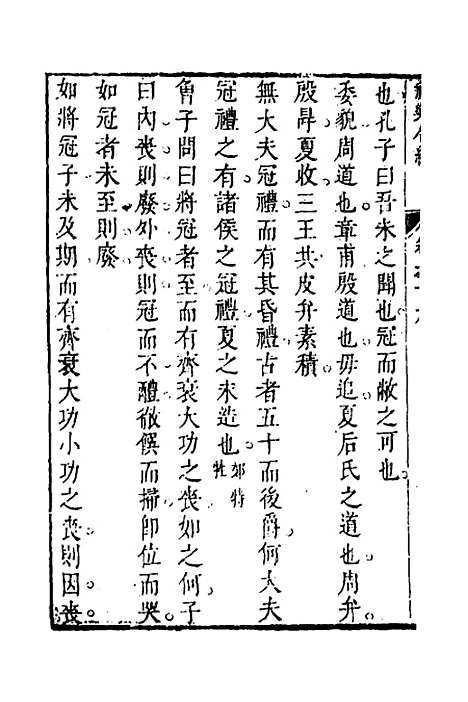 也孔子曰吾未之聞也冠而敝之可也
委貌周道也章甫殷道也毋追夏后氏之道也周弁
殷冔夏收三王共皮弁素積
無大夫冠禮而有其昏禮古者五十而後爵何大夫
冠禮之有諸侯之冠禮夏之末造也郊特牲
曾子問曰將冠者至而有齊衰大功之喪如之何子
曰內喪則廢外喪則冠而不醴徹饌而掃即位而哭
如冠者未至則廢
如將冠子未及期而有齊衰大功小功之喪則因喪